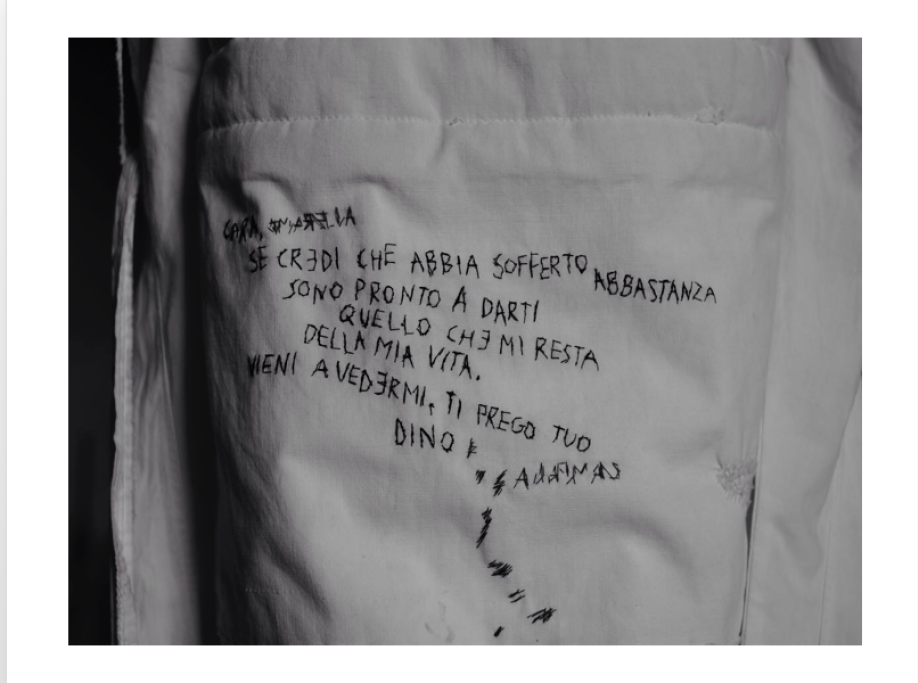 CARA,
SE CREDI CHE ABBIA SOFFERTO ABBASTANZA
SONO PRONTO A DARTI
QUELLO CHE MI RESTA
DELLA MIA VITA.
VIENI A VEDERMI, TI PREGO TUO
DINO